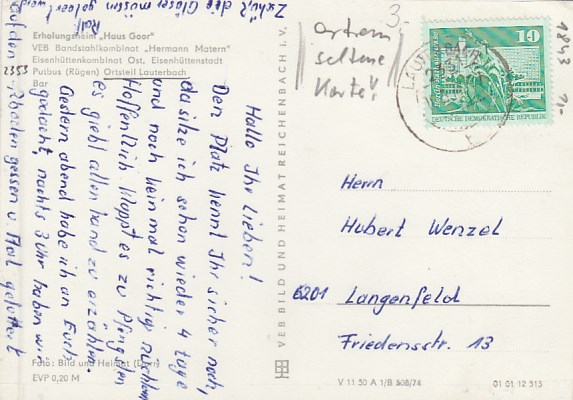 Erholungsheim „Haus Goor"
VEB Bandstahlkombinat „Hermann Matern"
Eisenhüttenkombinat Ost, Eisenhüttenstadt
2353 Putbus (Rügen) Ortsteil Lauterbach
Bar
Hallo Ihr Lieben!
Den Platz kennt Ihr sicher noch,
da sitze ich schon wieder 4 Tage
und noch keinmal richtig
Hoffentlich klappt es zu Pfingsten
es giebt allen hand zu erzählen.
Gestern abend habe ich an Euch
gedacht, nachts 3 Uhr haben wir
auf den Boden gesessen u.
die Gläser müssen geleert werden
Foto: Bild und Heimat
EVP 0,20 M
VEB BILD UND HEIMAT REICHENBACH i. V.
3.-
extrem
seltene
Karte!
10
DEUTSCHE DEMOKRATISCHE REPUBLIK
1843
Herrn
Hubert Wenzel
6201 Langenfeld
Friedensstr. 13
V 11 50 A 1/B 508/74
01 01 12 313